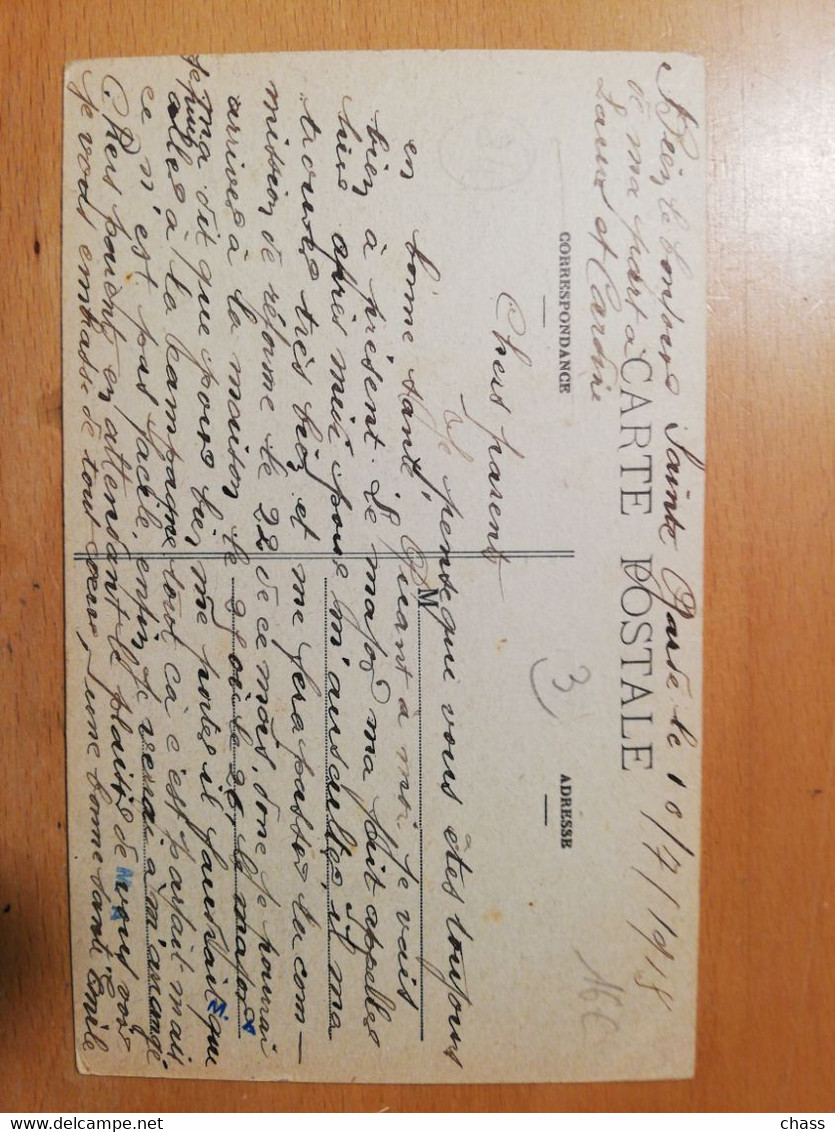 Sainte Marse le 10/7/1918
Bien le bonjour
de ma part à
CARTE POSTALE
CORRESPONDANCE
ADRESSE
3
16 C
Chers parents
Je pense que vous êtes toujours
en bonne santé. Quant à moi je vais
M
bien à présent. Le major ma fait appeller
hier apres midi pour m'auscultes, il ma
trouver très bien et me fera passer la com-
mission de réforme le 22 de ce mois, donc je pourrai
arriver à la maison le 25 ou le 26, le major
ma dit que pour bien me porter il faudrait que
je puis aller à la campagne tout cà c'est parfait mais
ce n'est pas facile, enfin je verrai à m'arranger.
Chers parents en attendant le plaisir de vous voir
je vous embrasse de tout coeur, une bonne santé Emile
chass